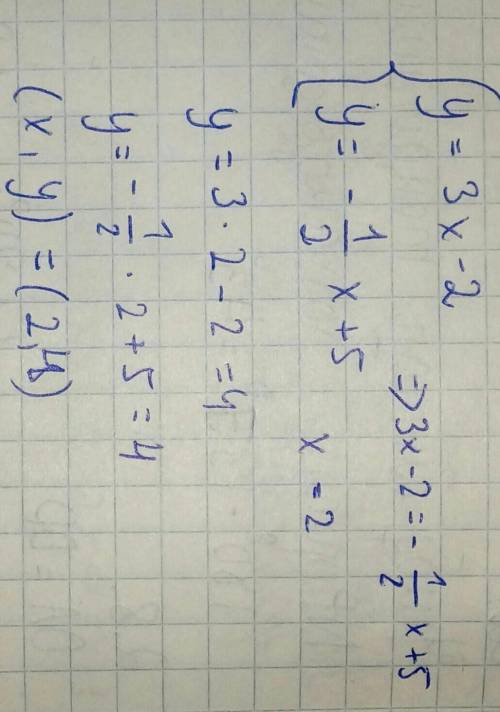 y = 3x - 2
y = - 1/2 x + 5
⇒ 3x - 2 = - 1/2 x + 5
x = 2
y = 3 · 2 - 2 = 4
y = - 1/2 · 2 + 5 = 4
(x, y) = (2, 4)